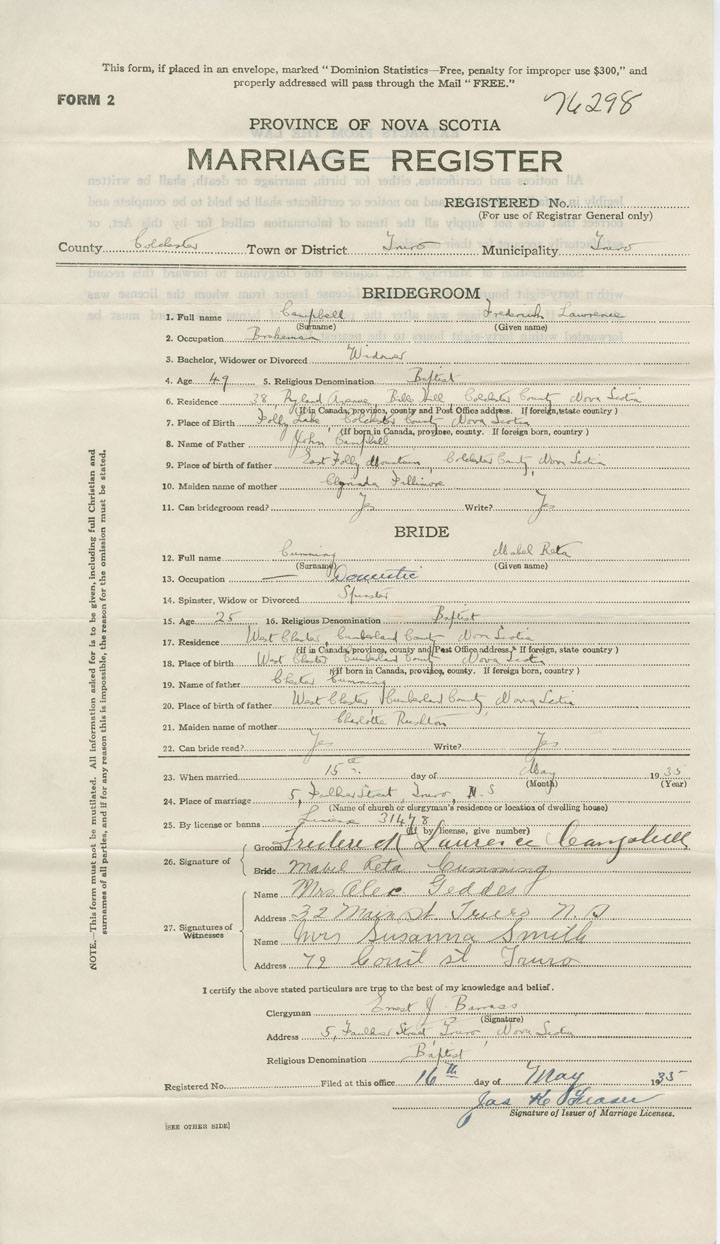 This form, if placed in an envelope, marked "Dominion Statistics—Free, penalty for improper use $300," and
properly addressed will pass through the Mail "FREE."
FORM 2
76298
PROVINCE OF NOVA SCOTIA
MARRIAGE REGISTER
REGISTERED No.
(For use of Registrar General only)
County Colchester Town or District Truro Municipality Truro
BRIDEGROOM
1. Full name Campbell Frederick Lawrence
(Surname) (Given name)
2. Occupation Brakeman
3. Bachelor, Widower or Divorced Widower
4. Age 49 5. Religious Denomination Baptist
6. Residence 38 Ryland Avenue, Bible Hill Colchester County Nova Scotia
(If in Canada, province, county and Post Office address. If foreign, state country)
7. Place of Birth Folly Lake Colchester County Nova Scotia
(If born in Canada, province, county. If foreign born, country)
8. Name of Father John Campbell
9. Place of birth of father East Folly Mountain, Colchester County, Nova Scotia
10. Maiden name of mother Fillmore
11. Can bridegroom read? Yes Write? Yes
BRIDE
12. Full name Cumming Mabel Reta
(Surname) (Given name)
13. Occupation — Domestic
14. Spinster, Widow or Divorced Spinster
15. Age 25 16. Religious Denomination Baptist
17. Residence West Chester, Cumberland County Nova Scotia
(If in Canada, province, county and Post Office address. If foreign, state country)
18. Place of birth West Chester Cumberland County Nova Scotia
(If born in Canada, province, county. If foreign born, country)
19. Name of father Chester Cumming
20. Place of birth of father West Chester Cumberland County, Nova Scotia
21. Maiden name of mother Charlotte Rushton
22. Can bride read? Yes Write? Yes
23. When married 15th day of May 1935
(Month) (Year)
24. Place of marriage 5, Faulkner Street, Truro, N.S
(Name of church or clergyman's residence or location of dwelling house)
25. By license or banns License 31478
(If by license, give number)
26. Signature of
Groom Frederick Laurence Campbell
Bride Mabel Reta Cumming
27. Signatures of Witnesses
Name Mrs Alec Geddes
Address 32 Main St Truro N.S
Name Mrs Susanna Smith
Address 79 Court st Truro
NOTE.—This form must not be mutilated. All information asked for is to be given, including full Christian and
surnames of all parties, and if for any reason this is impossible, the reason for the omission must be stated.
I certify the above stated particulars are true to the best of my knowledge and belief.
Clergyman Ernest J. Barrass
(Signature)
Address 5, Faulkner Street, Truro, Nova Scotia
Religious Denomination Baptist
Registered No. Filed at this office 16th day of May 1935
Jas K Fraser
Signature of Issuer of Marriage Licenses.
[SEE OTHER SIDE]